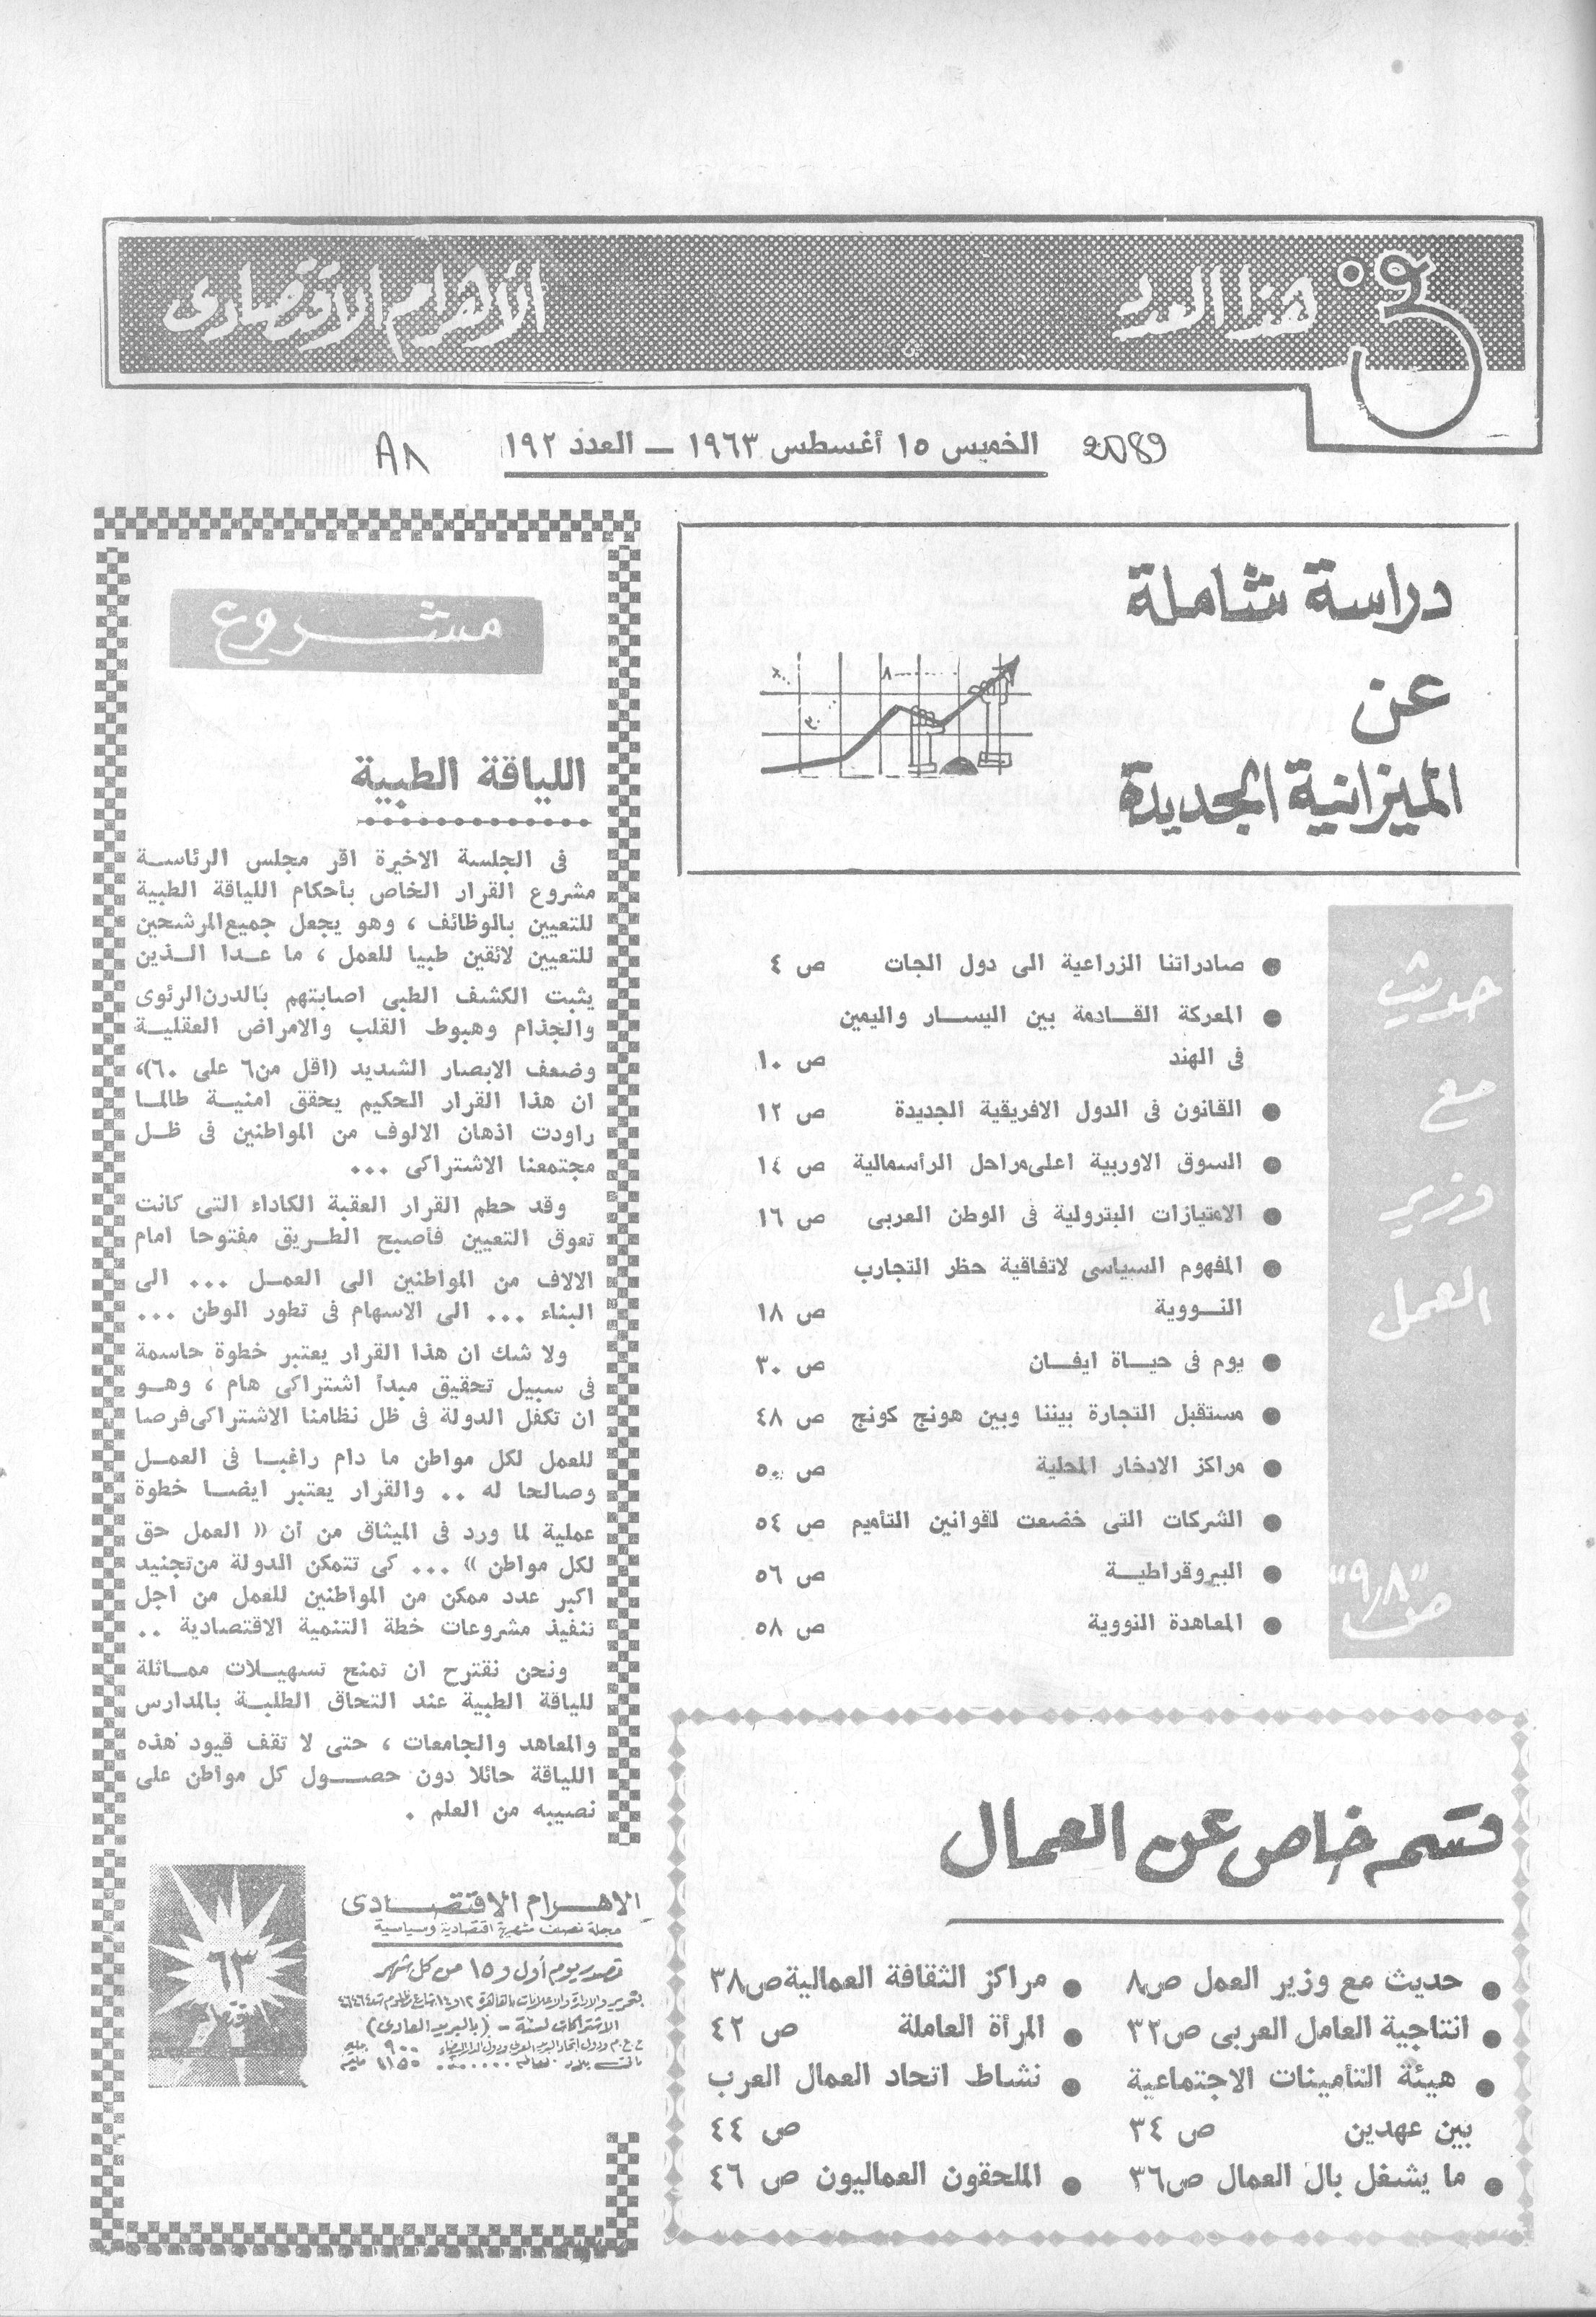 في هذا العدد
الأهرام الاقتصادى
2089
الخميس ١٥ أغسطس ١٩٦٣ — العدد ١٩٢
٨٨
دراسة شاملة
عن
الميزانية الجديدة
حديث
مع
وزير
العمل
ص "٩،٨"
● صادراتنا الزراعية الى دول الجات ص ٤
● المعركة القادمة بين اليسار واليمين
فى الهند ص ١٠
● القانون فى الدول الافريقية الجديدة ص ١٢
● السوق الاوربية اعلى مراحل الرأسمالية ص ١٤
● الامتيازات البترولية فى الوطن العربى ص ١٦
● المفهوم السياسى لاتفاقية حظر التجارب
النووية ص ١٨
● يوم فى حياة ايفان ص ٣٠
● مستقبل التجارة بيننا وبين هونج كونج ص ٤٨
● مراكز الادخار المحلية ص ٥٠
● الشركات التى خضعت لقوانين التأميم ص ٥٤
● البيروقراطية ص ٥٦
● المعاهدة النووية ص ٥٨
قسم خاص عن العمال
● حديث مع وزير العمل ص٨
● انتاجية العامل العربى ص٣٢
● هيئة التأمينات الاجتماعية
بين عهدين ص ٣٤
● ما يشغل بال العمال ص٣٦
● مراكز الثقافة العمالية ص٣٨
● المرأة العاملة ص ٤٢
● نشاط اتحاد العمال العرب
ص ٤٤
● الملحقون العماليون ص ٤٦
مشروع
اللياقة الطبية
فى الجلسة الاخيرة اقر مجلس الرئاسة
مشروع القرار الخاص بأحكام اللياقة الطبية
للتعيين بالوظائف ، وهو يجعل جميع المرشحين
للتعيين لائقين طبيا للعمل ، ما عدا الذين
يثبت الكشف الطبى اصابتهم بالدرن الرئوى
والجذام وهبوط القلب والامراض العقلية
وضعف الابصار الشديد (اقل من٦ على ٦٠)،
ان هذا القرار الحكيم يحقق امنية طالما
راودت اذهان الالوف من المواطنين فى ظل
مجتمعنا الاشتراكى ...
وقد حطم القرار العقبة الكاداء التى كانت
تعوق التعيين فأصبح الطريق مفتوحا امام
الالاف من المواطنين الى العمل ... الى
البناء ... الى الاسهام فى تطور الوطن ...
ولا شك ان هذا القرار يعتبر خطوة حاسمة
فى سبيل تحقيق مبدأ اشتراكى هام ، وهو
ان تكفل الدولة فى ظل نظامنا الاشتراكى فرصا
للعمل لكل مواطن ما دام راغبا فى العمل
وصالحا له .. والقرار يعتبر ايضا خطوة
عملية لما ورد فى الميثاق من أن « العمل حق
لكل مواطن » ... كى تتمكن الدولة من تجنيد
اكبر عدد ممكن من المواطنين للعمل من اجل
تنفيذ مشروعات خطة التنمية الاقتصادية ..
ونحن نقترح ان تمنح تسهيلات مماثلة
للياقة الطبية عند التحاق الطلبة بالمدارس
والمعاهد والجامعات ، حتى لا تقف قيود هذه
اللياقة حائلا دون حصول كل مواطن على
نصيبه من العلم .
الاهرام الاقتصادى
مجلة نصف شهرية اقتصادية وسياسية
تصدر يوم أول و ١٥ من كل شهر
الاشتراكات لسنة - (بالبريد العادى)
٦٣